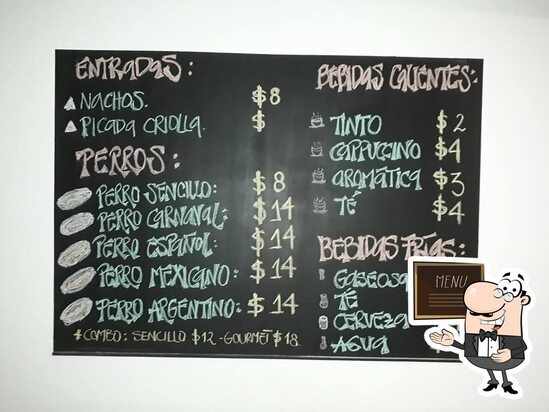 ENTRADAS:
NACHOS. $8
PICADA CRIOLLA. $
PERROS:
PERRO SENCILLO: $8
PERRO CARNAVAL: $14
PERRO ESPAÑOL: $14
PERRO MEXICANO: $14
PERRO ARGENTINO: $14
*COMBO: SENCILLO $12 - GOURMET $18.
BEBIDAS CALIENTES:
TINTO $2
CAPPUCCINO $4
AROMÁTICA $3
TÉ $4
BEBIDAS FRÍAS:
GASEOSA
TÉ
CERVEZA
AGUA
MENU